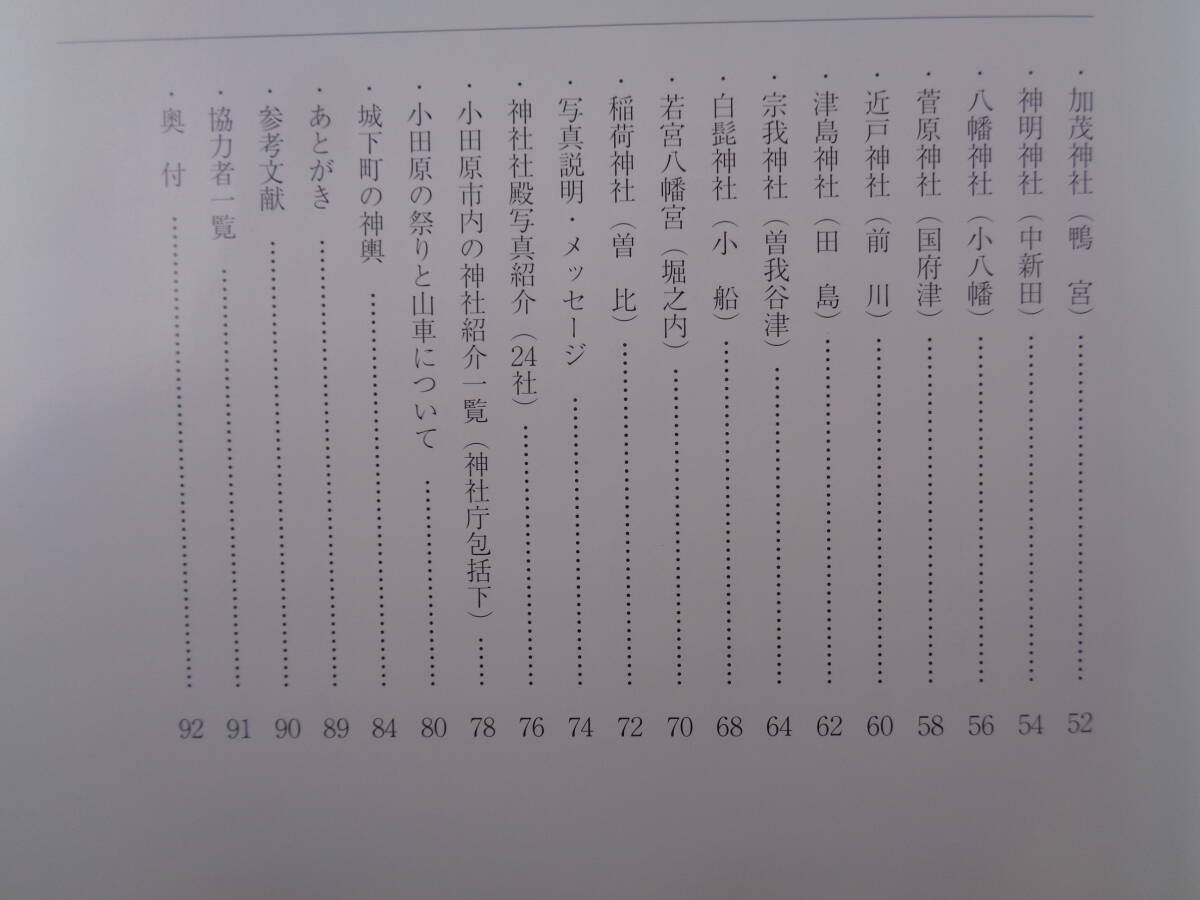 ・加茂神社（鴨　宮）……………………………… 52
・神明神社（中新田）……………………………… 54
・八幡神社（小八幡）……………………………… 56
・菅原神社（国府津）……………………………… 58
・近戸神社（前　川）……………………………… 60
・津島神社（田　島）……………………………… 62
・宗我神社（曽我谷津）…………………………… 64
・白髭神社（小　船）……………………………… 68
・若宮八幡宮（堀之内）…………………………… 70
・稲荷神社（曽　比）……………………………… 72
・写真説明・メッセージ…………………………… 74
・神社社殿写真紹介（24社）……………………… 76
・小田原市内の神社紹介一覧（神社庁包括下）…… 78
・小田原の祭りと山車について…………………… 80
・城下町の神輿……………………………………… 84
・あとがき…………………………………………… 89
・参考文献…………………………………………… 90
・協力者一覧………………………………………… 91
・奥　付……………………………………………… 92